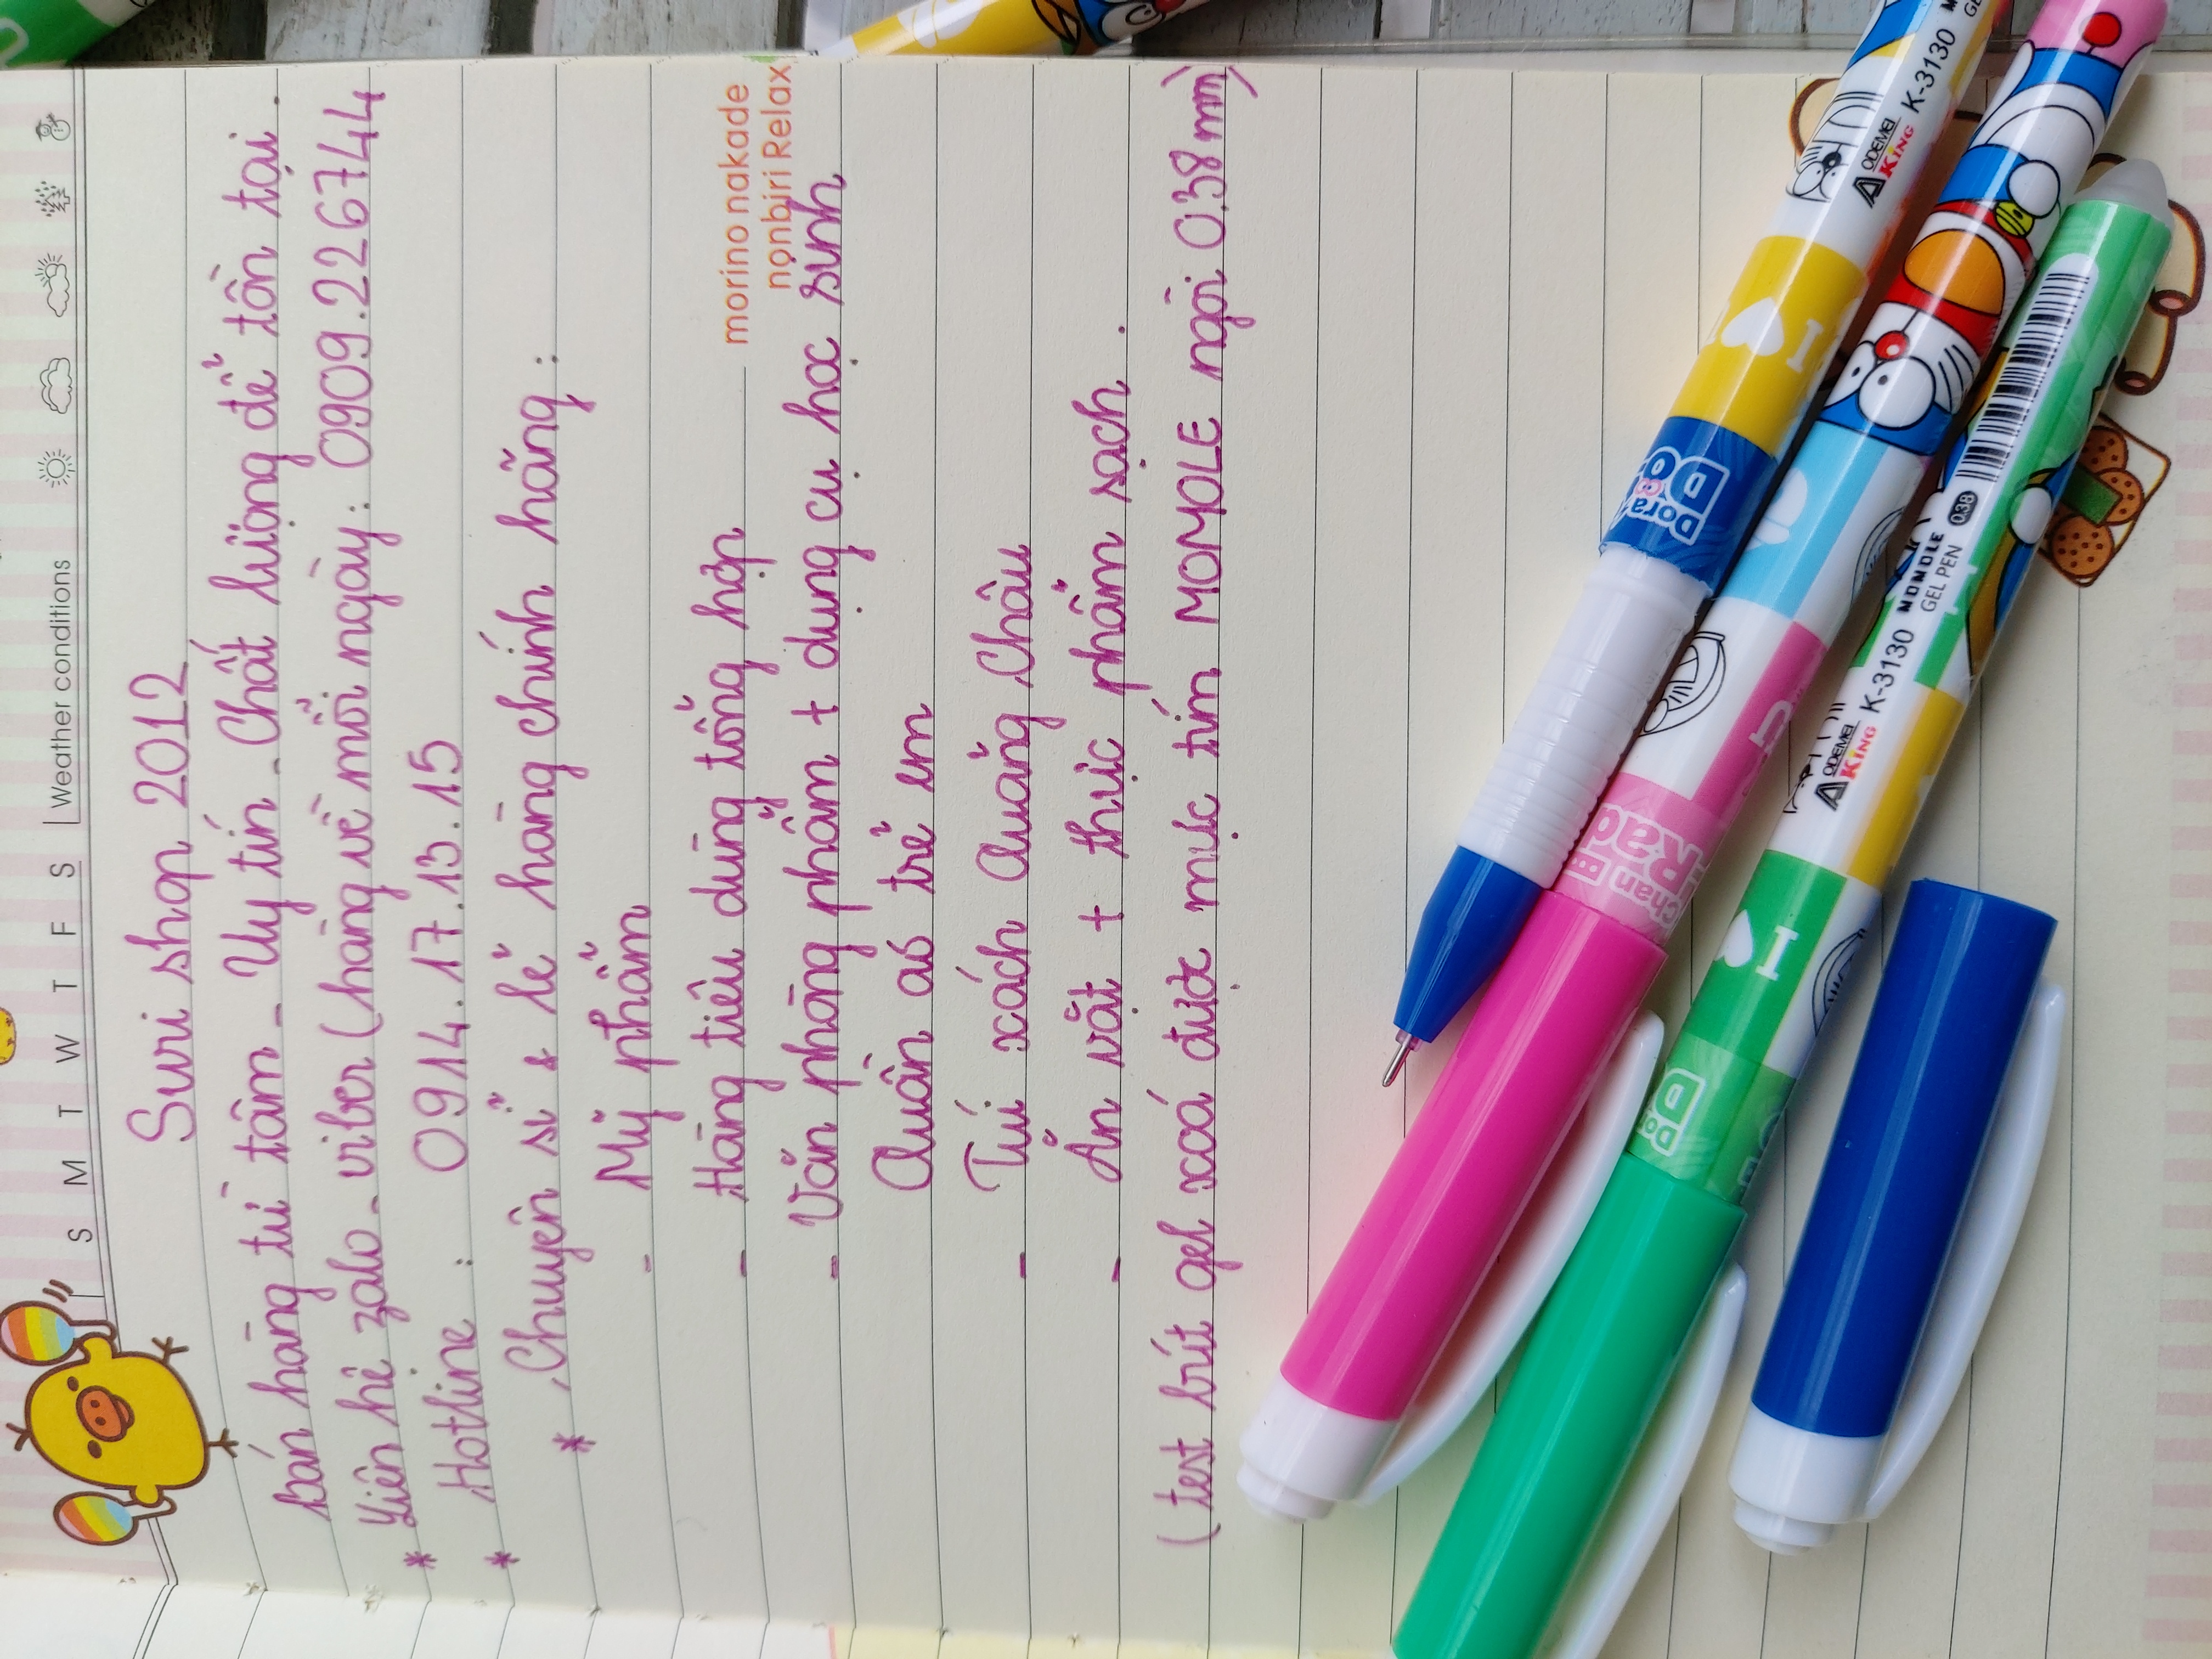 S M T W T F S Weather conditions
Suri shop 2012
bán hàng từ tâm - Uy tín - Chất lượng để tồn tại.
* Liên hệ zalo - viber (hàng về mỗi ngày: 0909.226744
* Hotline : 0914.17.13.15
* Chuyên sỉ & lẻ hàng chính hãng :
- Mỹ phẩm
- Hàng tiêu dùng tổng hợp
- Văn phòng phẩm + dụng cụ học sinh
Quần áo trẻ em
- Túi xách Quảng Châu
- Ăn vặt + thực phẩm sạch.
(test bút gel xoá được mực tím MOMOLE ngòi 0.38 mm)
morino nakade
nonbiri Relax
ODEMEI
KING
K-3130
Dora
DO
I
ODEMEI
KING
K-3130
NONOLE
GEL PEN
0.38
I
Chan
Rad